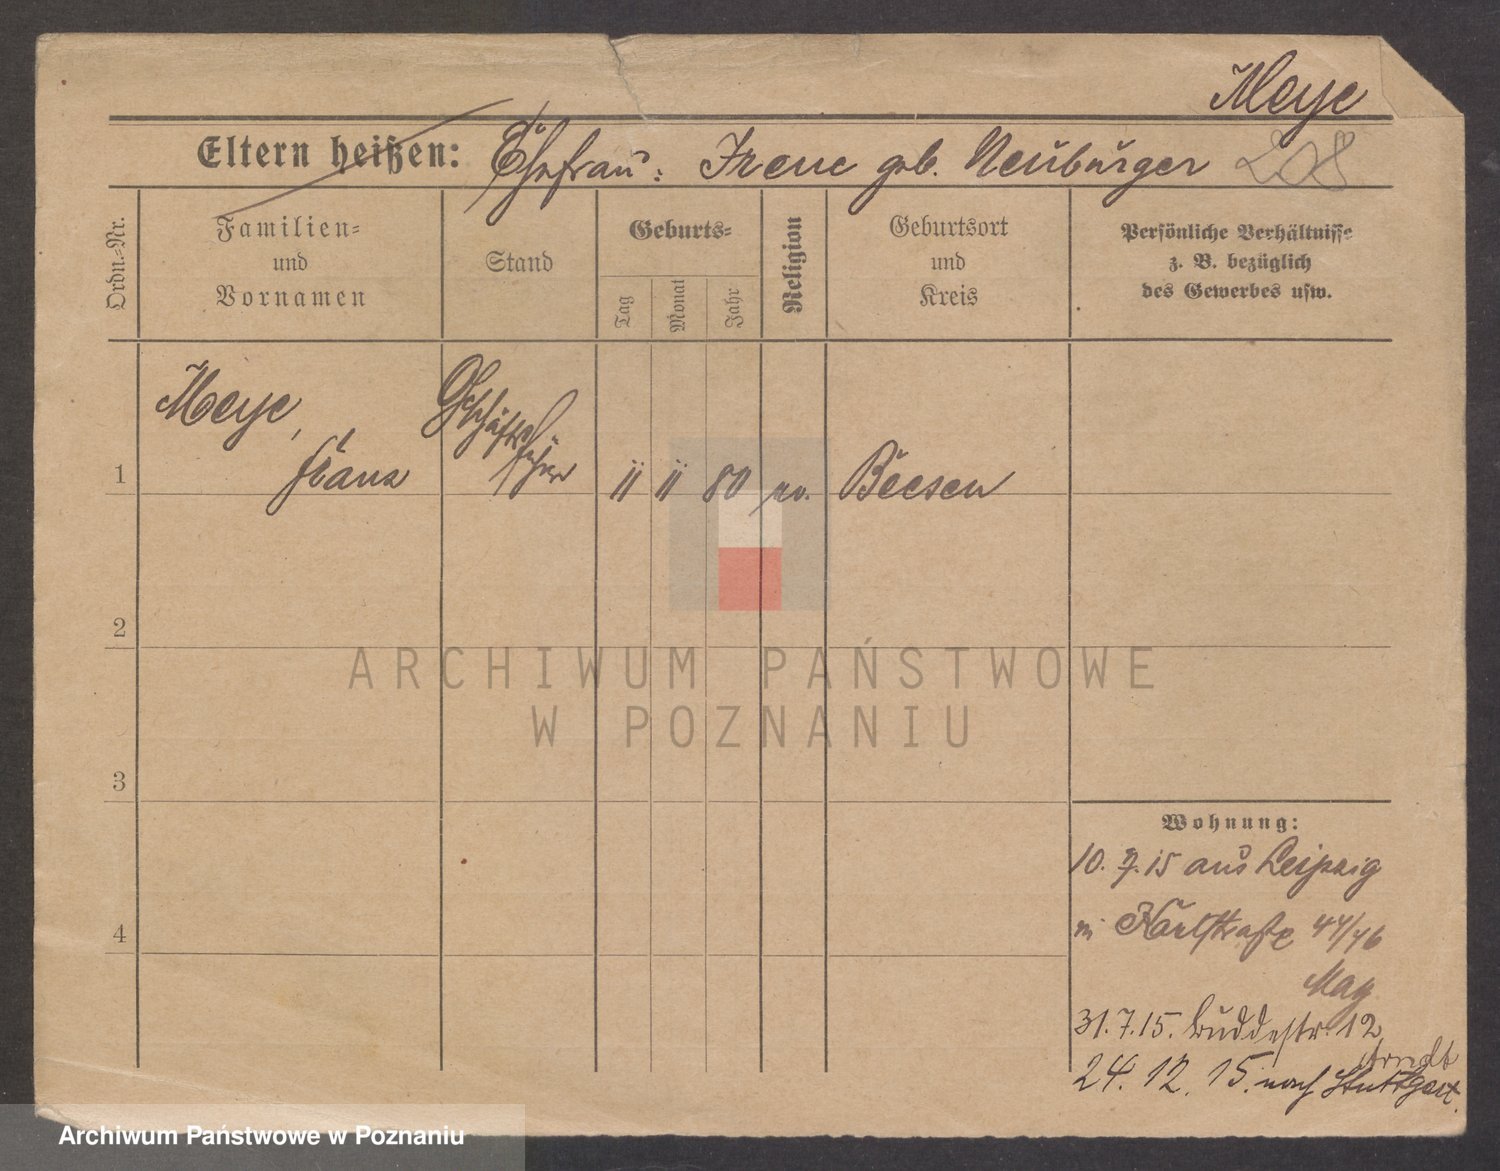 Meye
Eltern heißen: Ehefrau: Irene geb. Neuburger 208
Ordn.=Nr.
Familien=
und
Vornamen
Stand
Geburts=
Tag
Monat
Jahr
Religion
Geburtsort
und
Kreis
Persönliche Verhältnisse
z. B. bezüglich
des Gewerbes usw.
Meye,
Franz
Geschäfts
führer
1 11 11 80 ev. Beesen
2
3
4
ARCHIWUM PAŃSTWOWE
W POZNANIU
Wohnung:
10. 7. 15 aus Leipzig
in Karlstraße 44/46
May
31. 7. 15. Buddestr. 12
Arndt
24. 12. 15. nach Stuttgart.
Archiwum Państwowe w Poznaniu